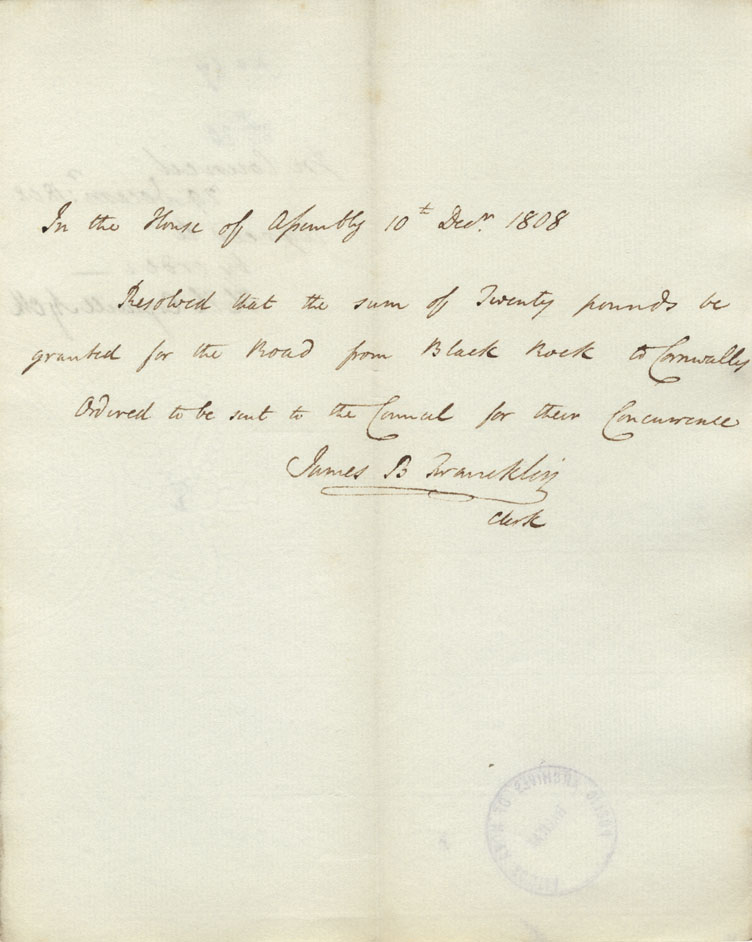 In the House of Assembly 10th Decr. 1808
Resolved that the sum of Twenty pounds be
granted for the Road from Black Rock to Cornwallis
Ordered to be sent to the Council for their Concurrence
James B Francklin
Clerk
PUBLIC ARCHIVES OF NOVA SCOTIA